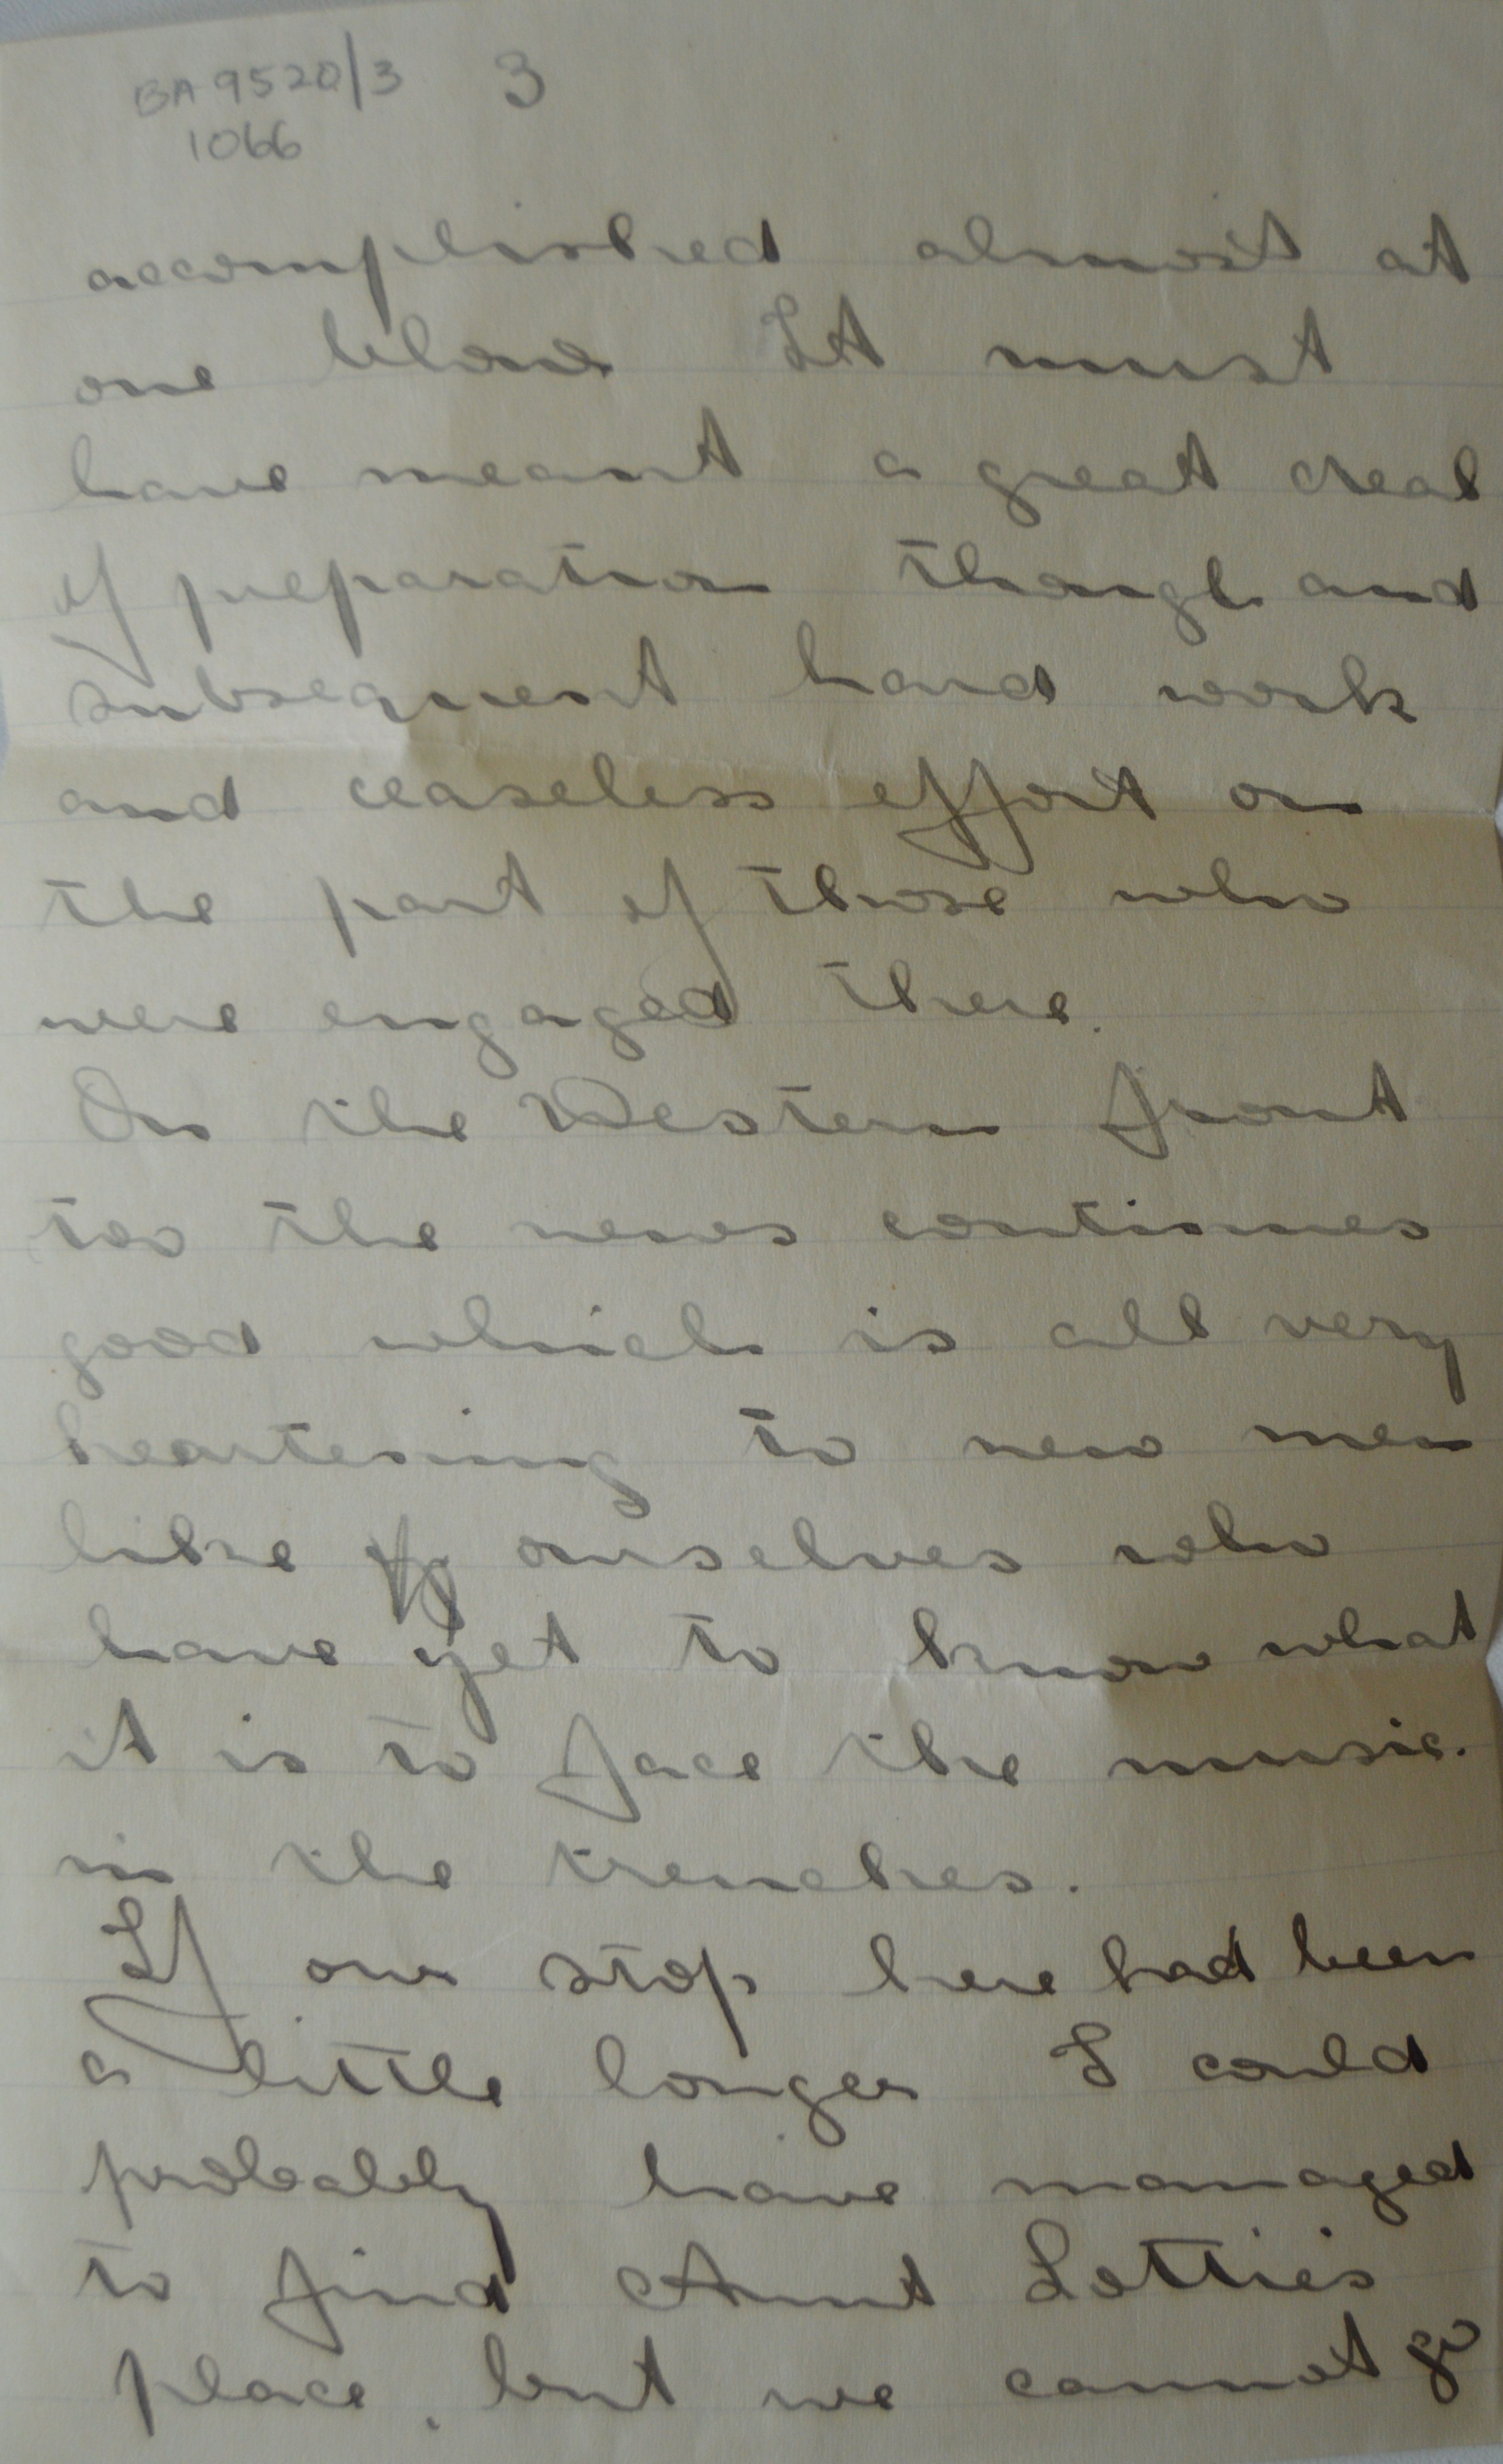 BA 9520/3 3
1066
accomplished almost at
one blow It must
have meant a great deal
of preparation though and
subsequent hard work
and ceaseless effort on
the part of those who
were engaged there.
On the Western front
too the news continues
good which is all very
heartening to new men
like ourselves who
have yet to know what
it is to face the music.
in the trenches.
If our stop here had been
a little longer I could
probably have managed
to find Aunt Lottie's
place, but we cannot go